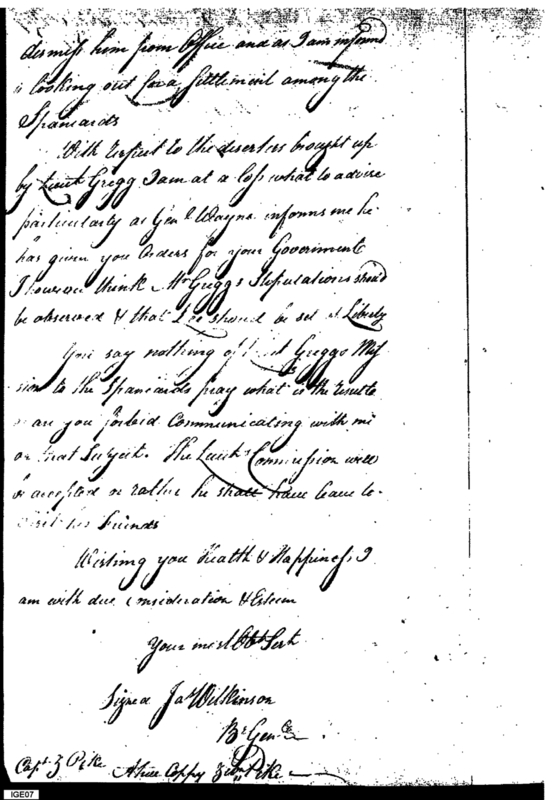 dismiss him from Office and as I am informd
is looking out for a Settlement among the
Spaniards
With respect to the deserters brought up
by Lieut Gregg I am at a loss what to advise
particularly as Genl Wayne informs me he
has given you Orders for your Government
I however think Mr Greggs Stipulations should
be observed & that he should be set at Liberty
You say nothing of Lieut Greggs Mis
sion to the Spaniards pray what is the result
or are you forbid Communicating with me
on that Subject. The Lieuts Commission will
be accepted or rather he shall have leave to
visit his friends
Wishing you Health & Happiness, I
am with due consideration & Esteem
Your most Obt Sert
Signed Jas Wilkinson
Br Genl
Capt Z Pike
A true Coppy Zebn Pike
IGE07